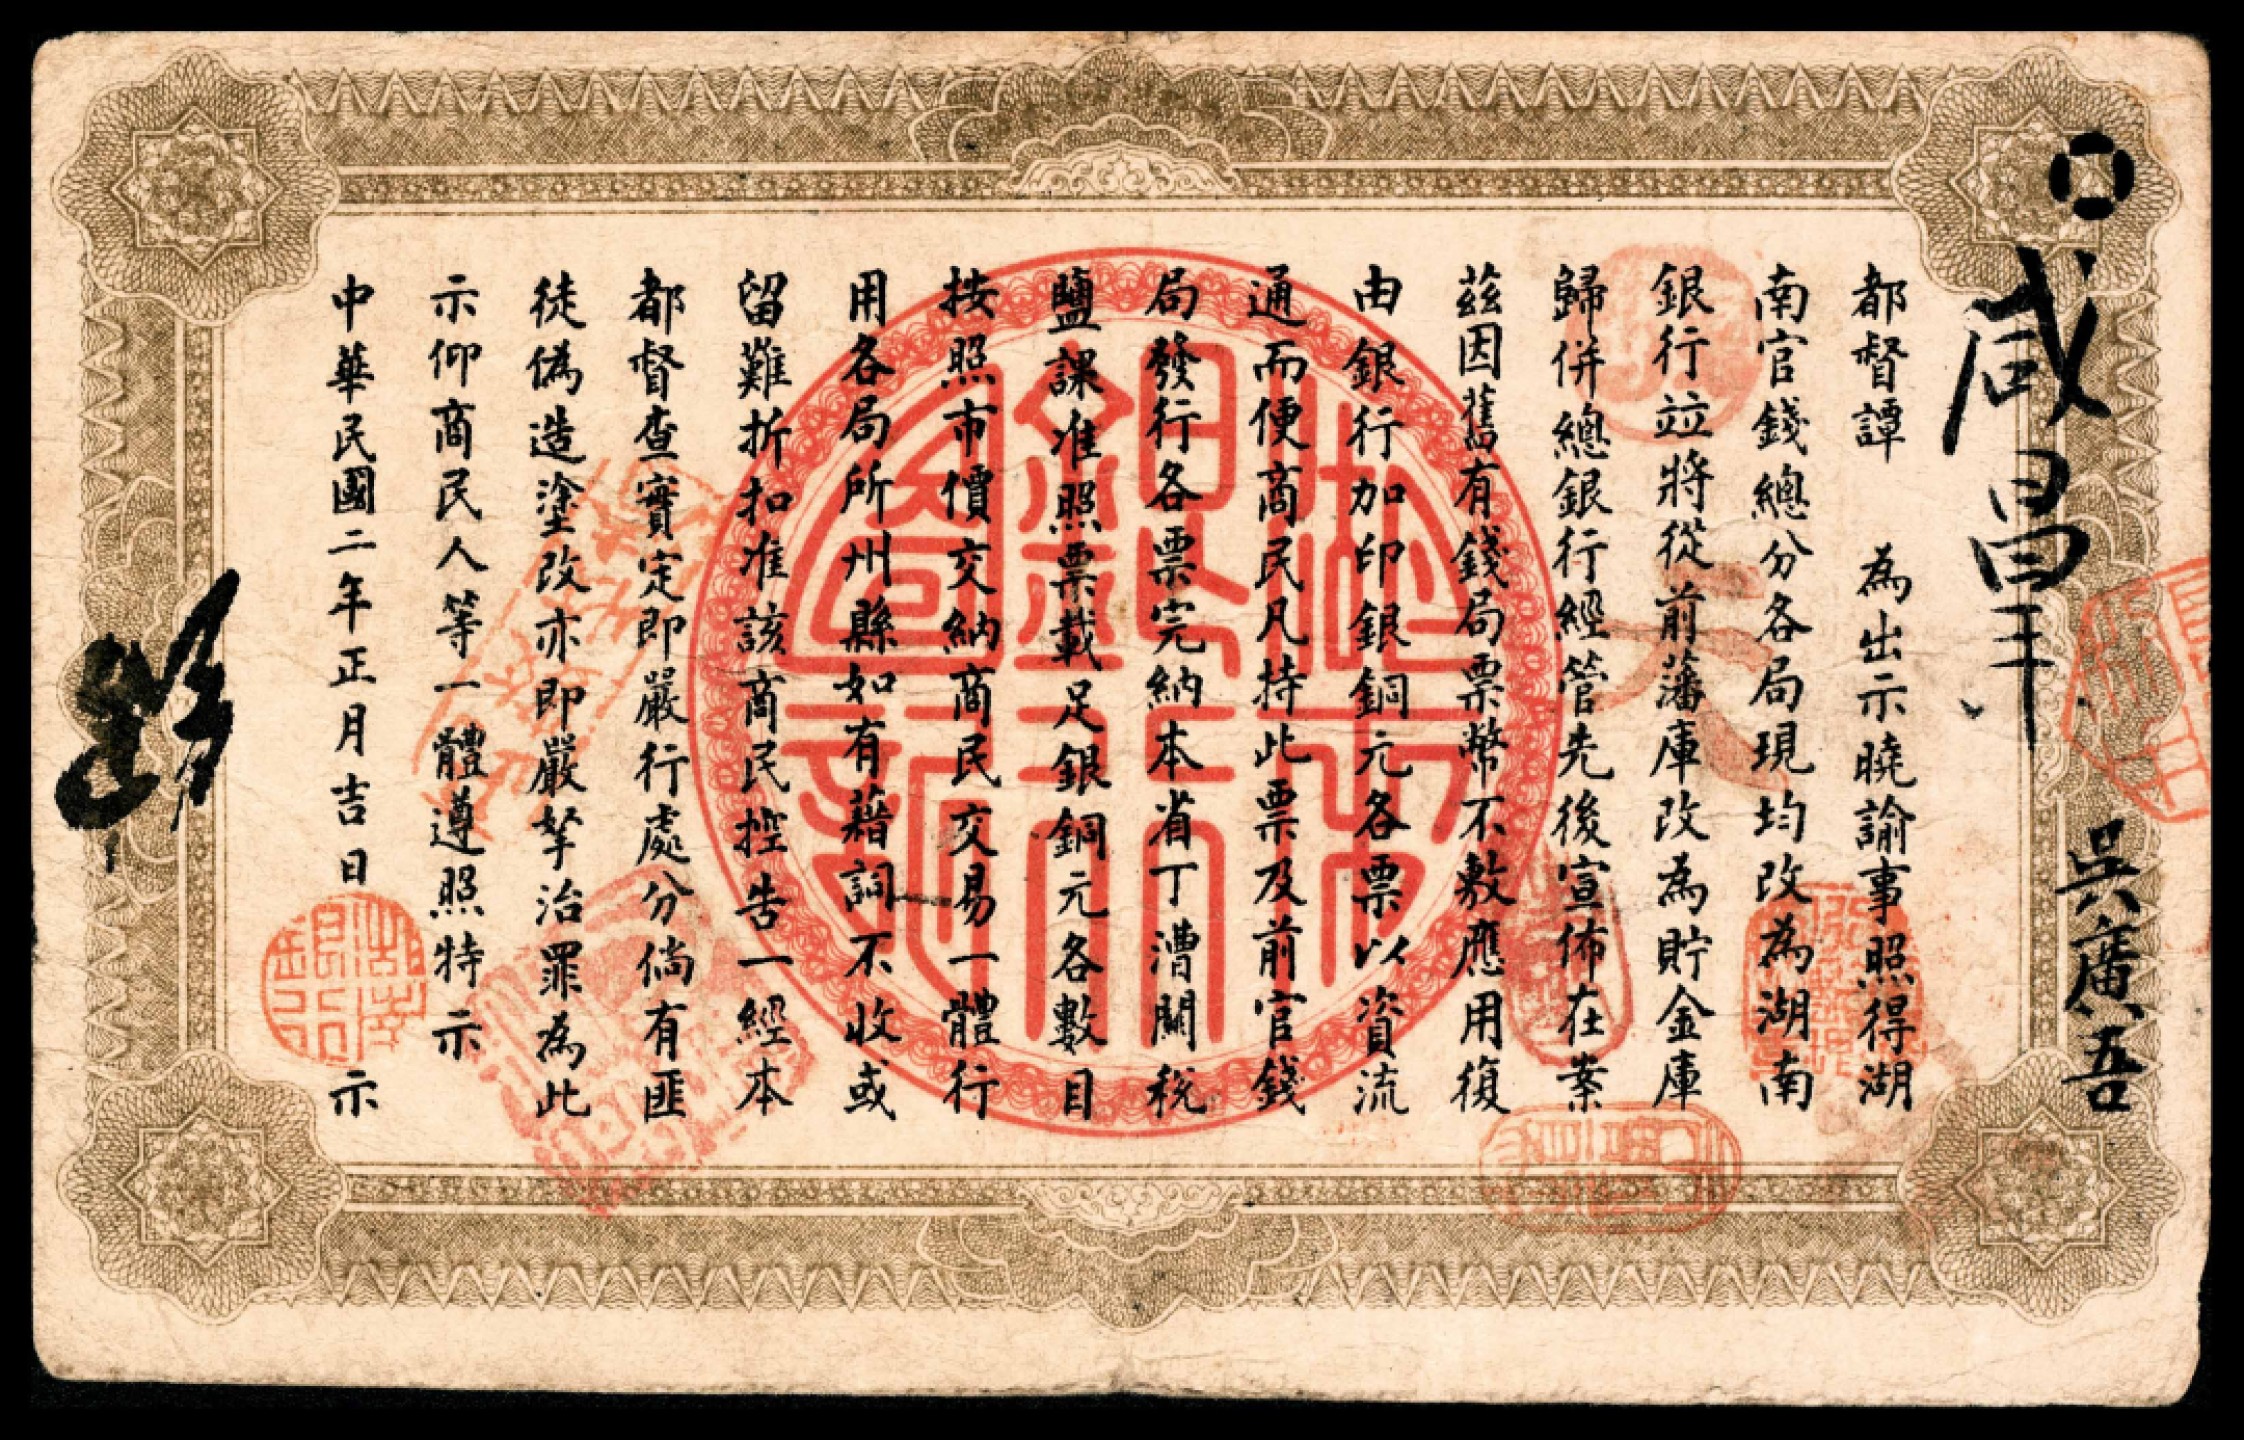 都督譚　為出示曉諭事照得湖
南官錢總分各局現均改為湖南
銀行竝將從前藩庫改為貯金庫
歸併總銀行經管先後宣佈在案
茲因舊有錢局票幣不敷應用復
由銀行加印銀銅元各票以資流
通而便商民凡持此票及前官錢
局發行各票完納本省丁漕關稅
鹽課准照票載足銀銅元各數目
按照市價交納商民交易一體行
用各局所州縣如有藉詞不收或
留難折扣准該商民控告一經本
都督查實定即嚴行處分倘有匪
徒偽造塗改亦即嚴拏治罪為此
示仰商民人等一體遵照特示
中華民國二年正月吉日　示
湖南
銀行
圖記
湖南
銀行
吳廣吾